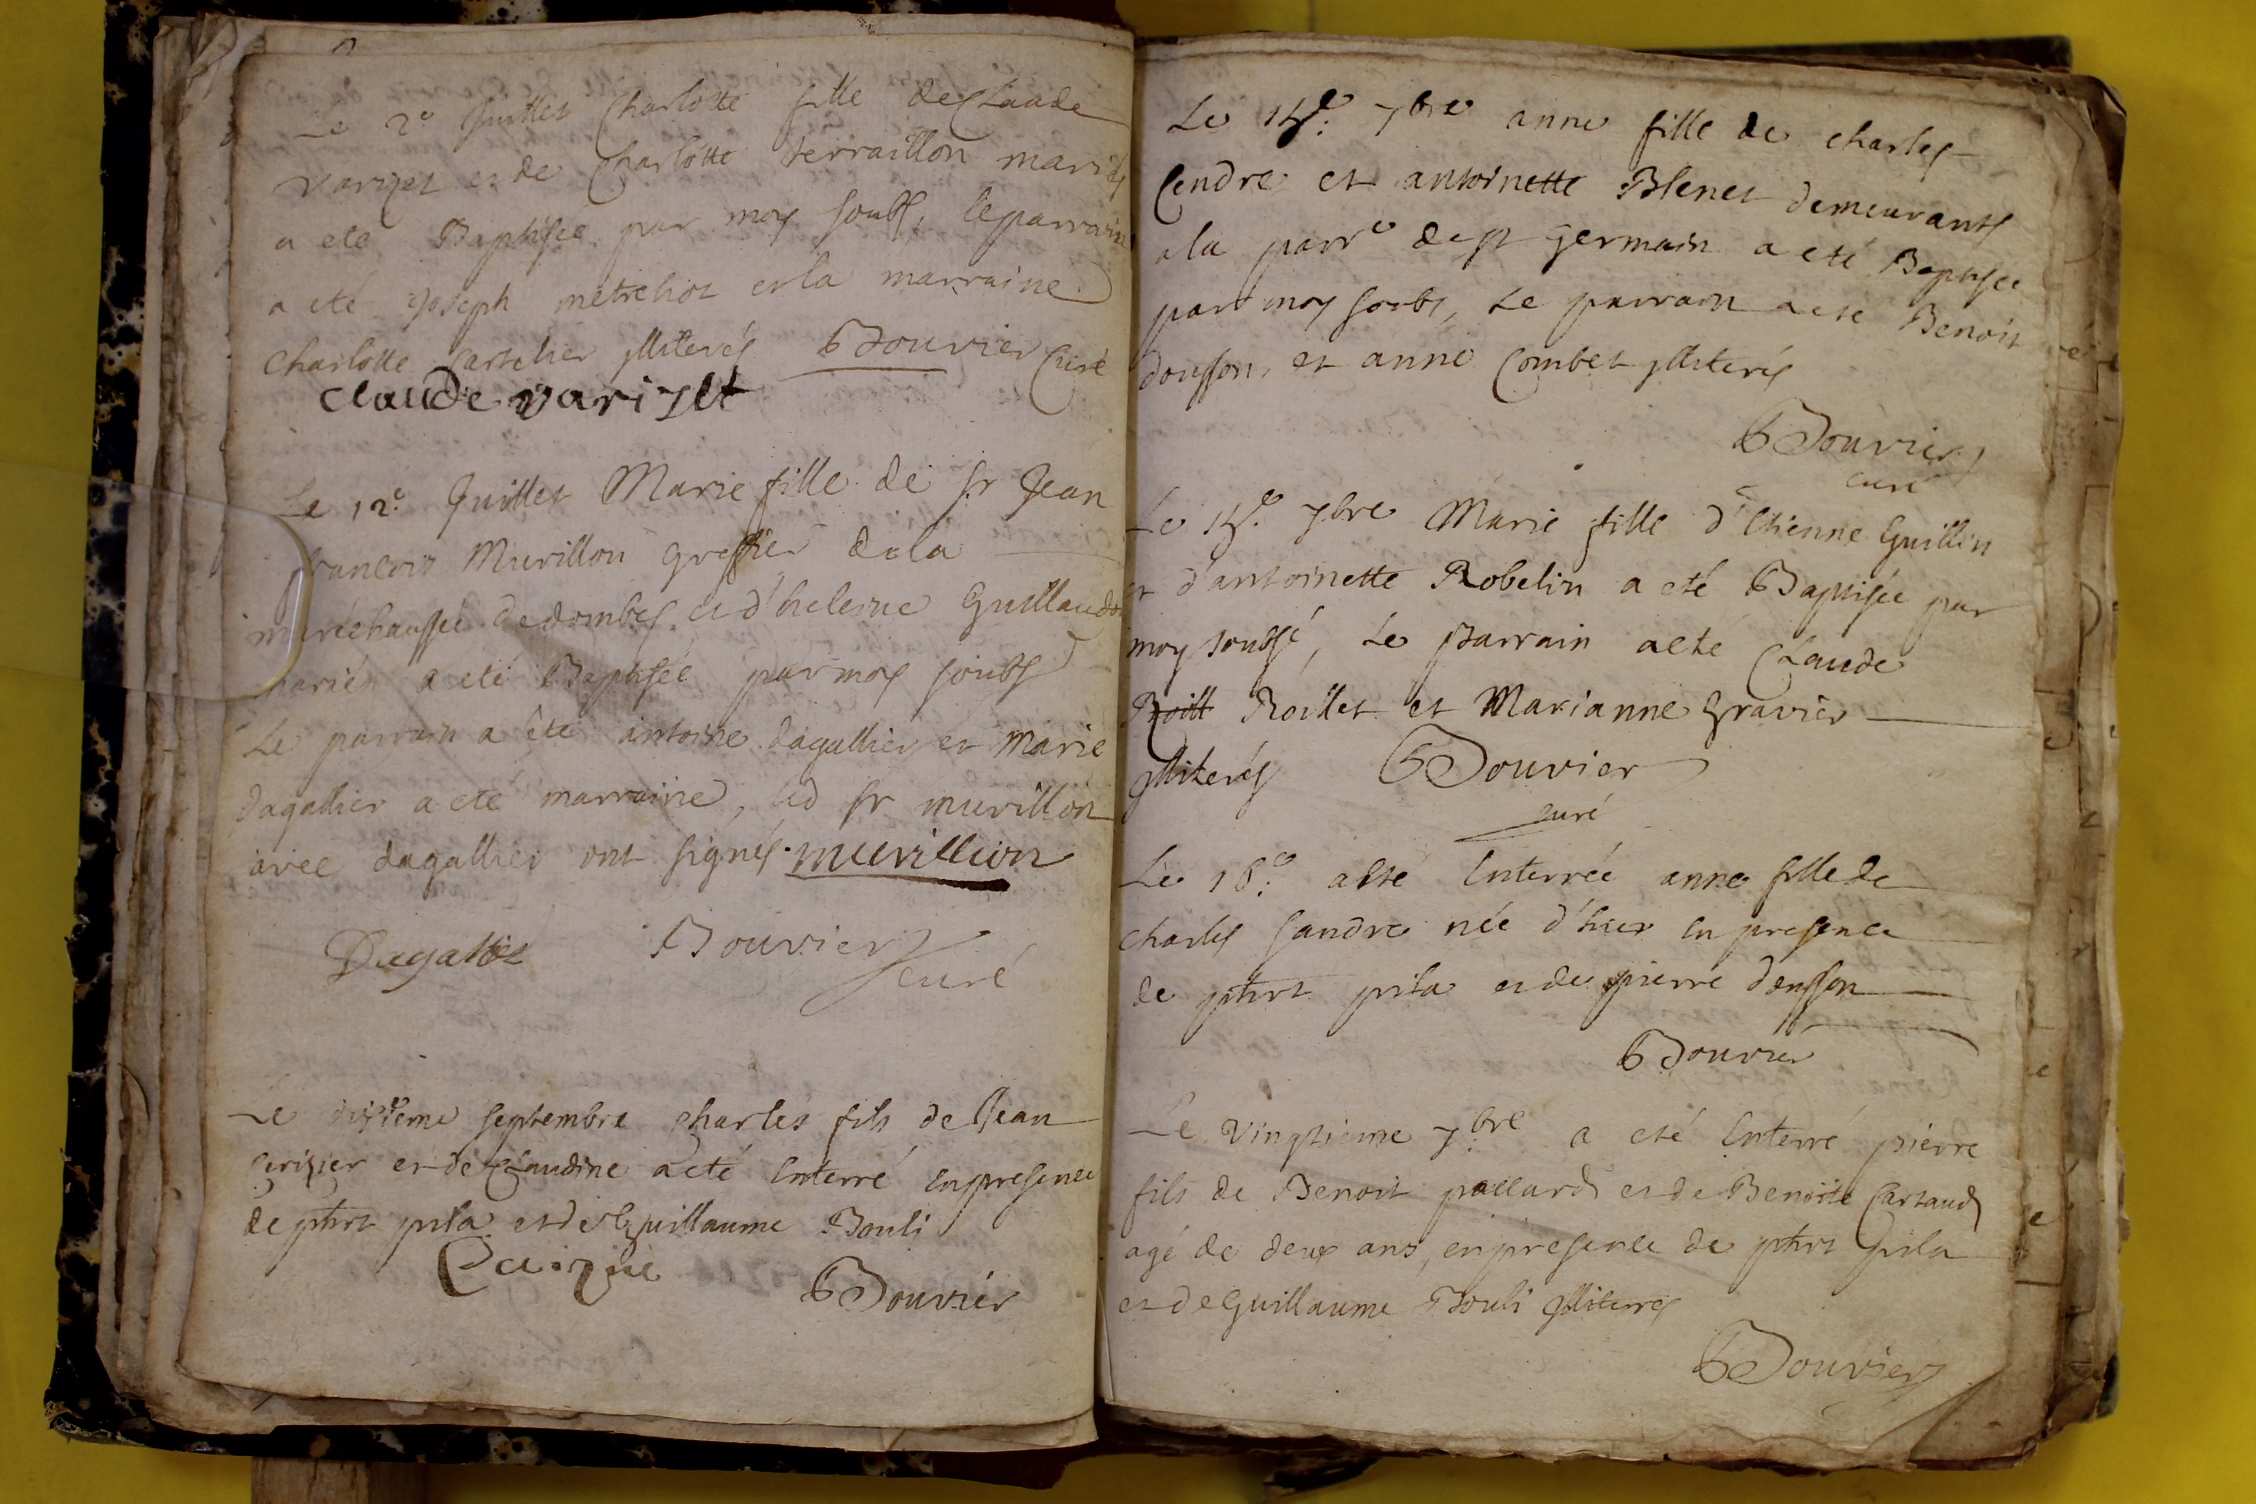 Le 2e Juillet Charlotte fille de Claude
varizet et de Charlotte Terraillon mariés
a eté Baptisée par moy soubs, le parrain
a eté Joseph metrehot et la marraine
Charlotte Cartelier illiterés Bouvier Curé
Claude variset
Le 12e Juillet Marie fille de sr Jean
francois Murillon greffier de la
maréchaussée de dombes et d'helesne Guillaud
mariés a eté Baptisée par moy soubs
Le parrain a été antoine dagallier et Marie
dagallier a eté marraine, led sr murillon
avec dagallier ont signés. murillion
Dagallier Bouvier
curé
Le dixieme septembre charles fils de Jean
Cerizier et de Claudine a eté Enterré En presence
de phrt pila et de Guillaume Bouli
Bouvier
Le 15e. 7bre anne fille de charles
Cendre et antoinette Blenet demeurants
a la parre de st Germain a eté Baptisée
par moy soubs, Le parrain a eté Benoit
dousson, et anne Combet illiterés
Bouvier
curé
Le 15e. 7bre Marie fille d'Etienne Guillin
et d'antoinette Robelin a eté Baptisée par
moy soubsé, Le parrain a eté Claude
Roill Roillet et Marianne Gravier
illiterés Bouvier
curé
Le 16e. a eté Enterrée anne fille de
charles sandre née d'hier En presence
de phrt pila et de pierre dousson
Bouvier
Le vingtieme 7.bre a eté Enterré pierre
fils de Benoit paccard et de Benoite Cartaud
agé de deux ans, en presence de phrt pila
et de Guillaume Bouli illiterés
Bouvier